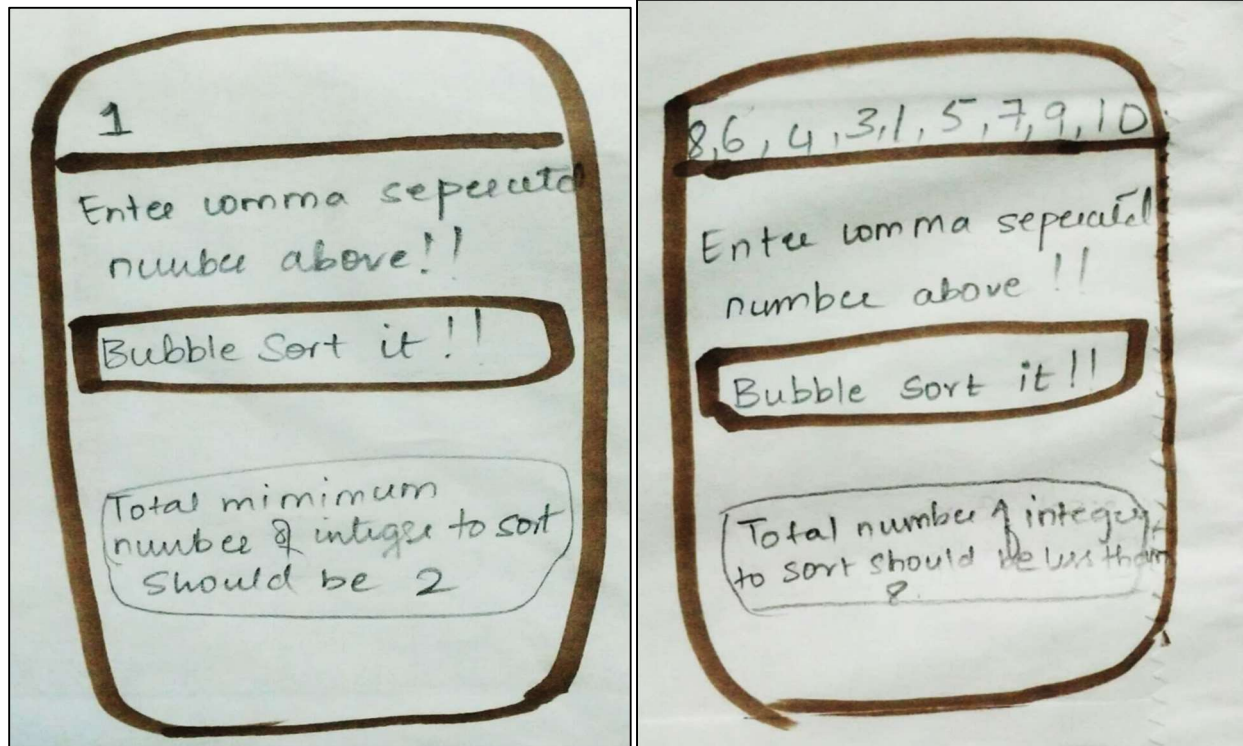 1
Enter comma seperated
number above!!
Bubble Sort it!!
Total mimimum
number of integer to sort
should be 2
8,6,4,3,1,5,7,9,10
Enter comma seperated
number above!!
Bubble sort it!!
Total number of integers
to sort should be less than
8